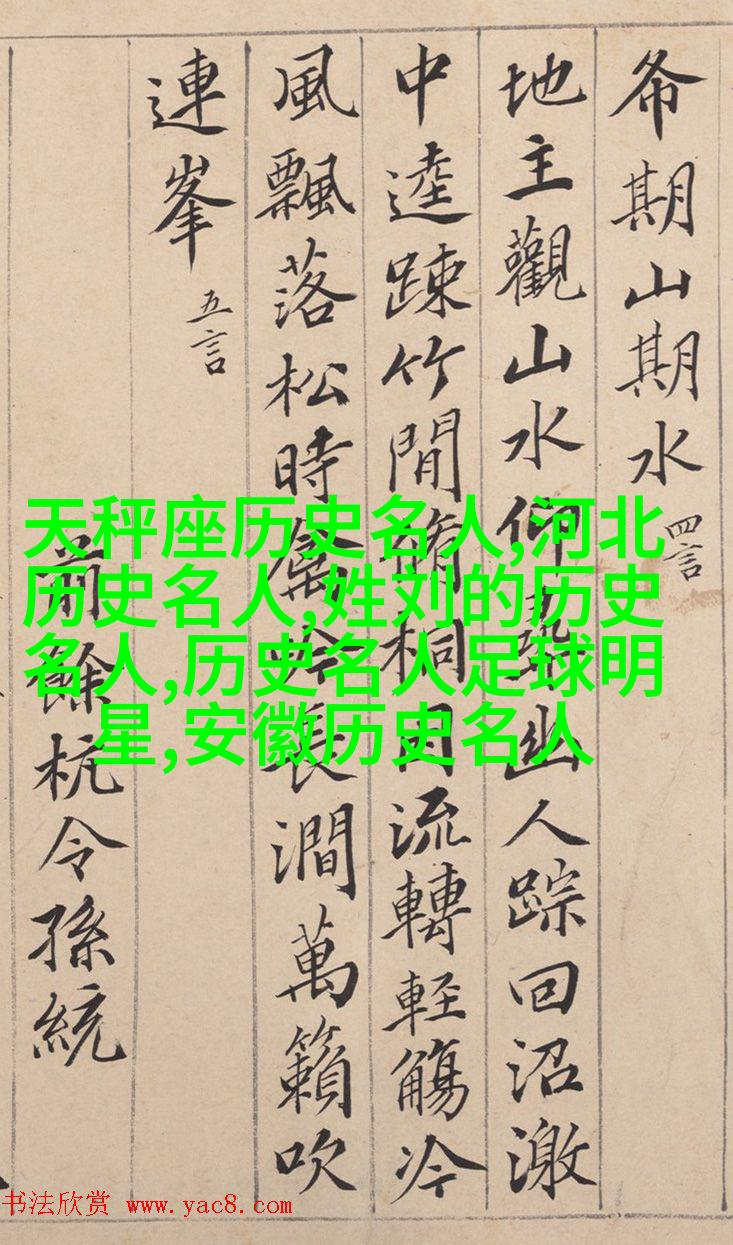 希期山期水 四言
地主觀山水仰尋幽人踪回沼激
中逵踈竹間脩桐因流轉輕觴冷
風飄落松時禽吟長澗萬籟吹
連峯 五言
前餘杭令孫統
天秤座历史名人,河北
历史名人,姓刘的历史
名人,历史名人足球明
星,安徽历史名人
书法欣赏 www.yac8.com